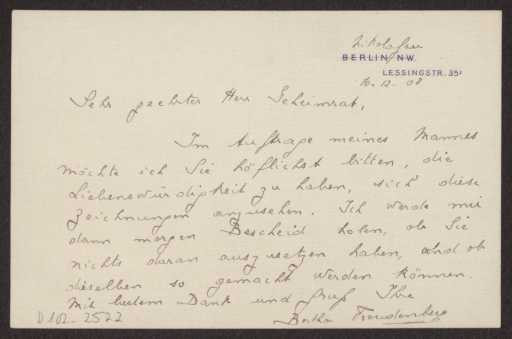 Nikolassee
BERLIN NW.
LESSINGSTR. 35I
16.12.08
Sehr geehrter Herr Geheimrat,
Im Auftrage meines Mannes
möchte ich Sie höflichst bitten, die
Liebenswürdigkeit zu haben, sich diese
Zeichnungen anzusehen. Ich werde mir
dann morgen Bescheid holen, ob Sie
nichts daran auszusetzen haben, und ob
dieselben so gemacht werden können.
Mit bestem Dank und Gruß Ihre
Bertha Freudenberg
D 102-2522